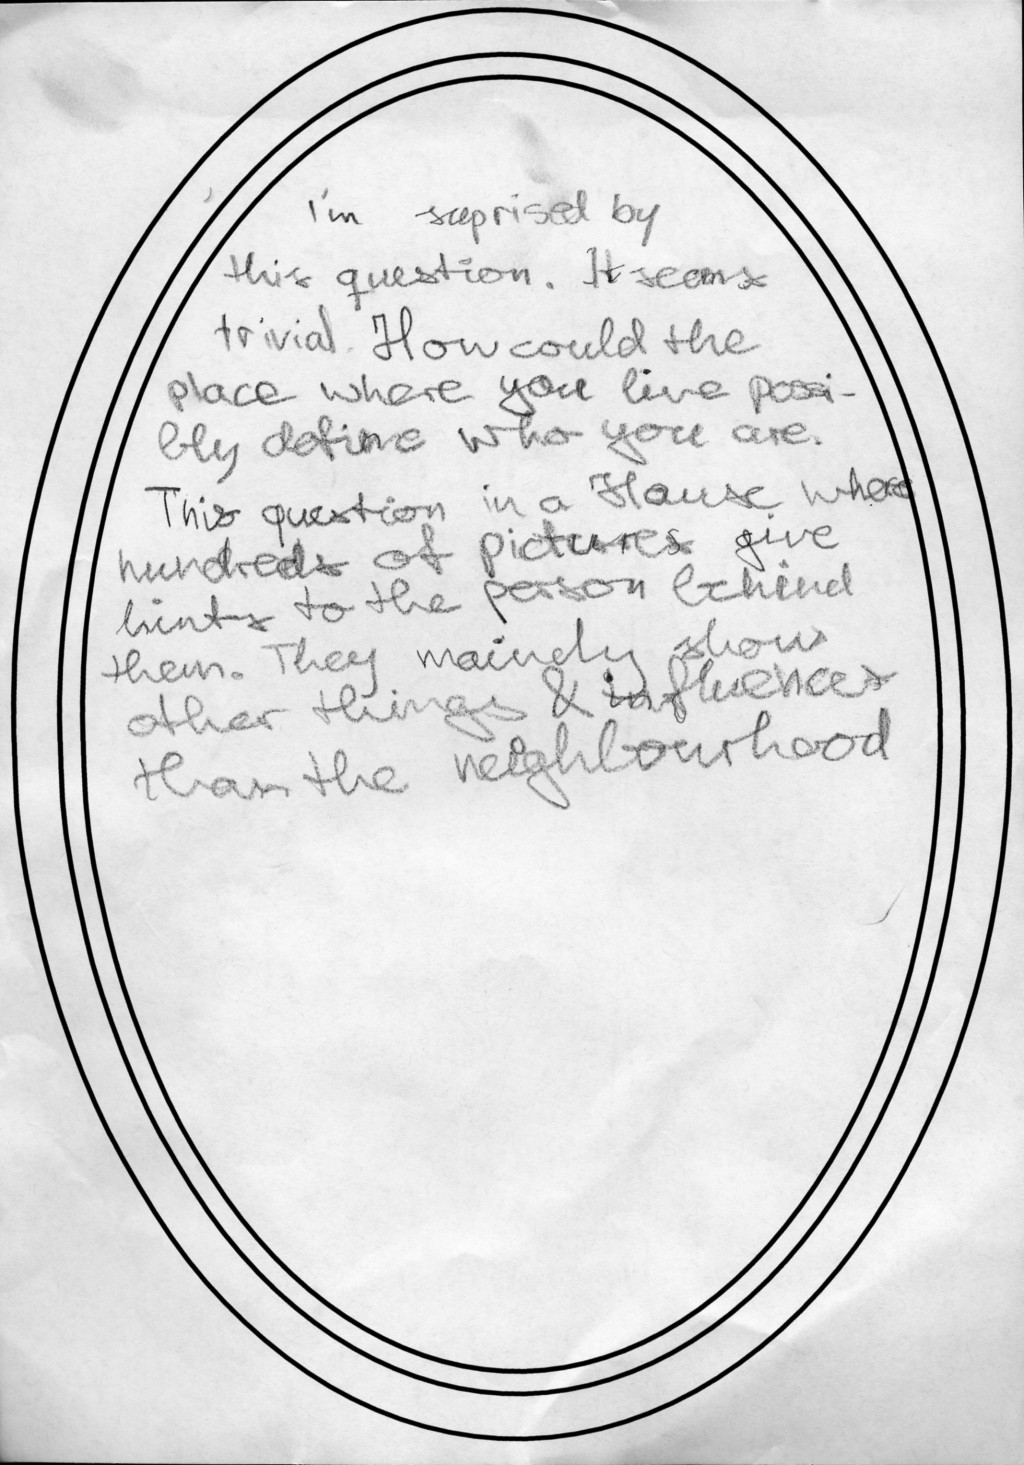 I'm suprised by
this question. It seems
trivial. How could the
place where you live possi-
bly define who you are.
This question in a House where
hundreds of pictures give
hints to the person behind
them. They mainly show
other things & influences
than the neighbourhood